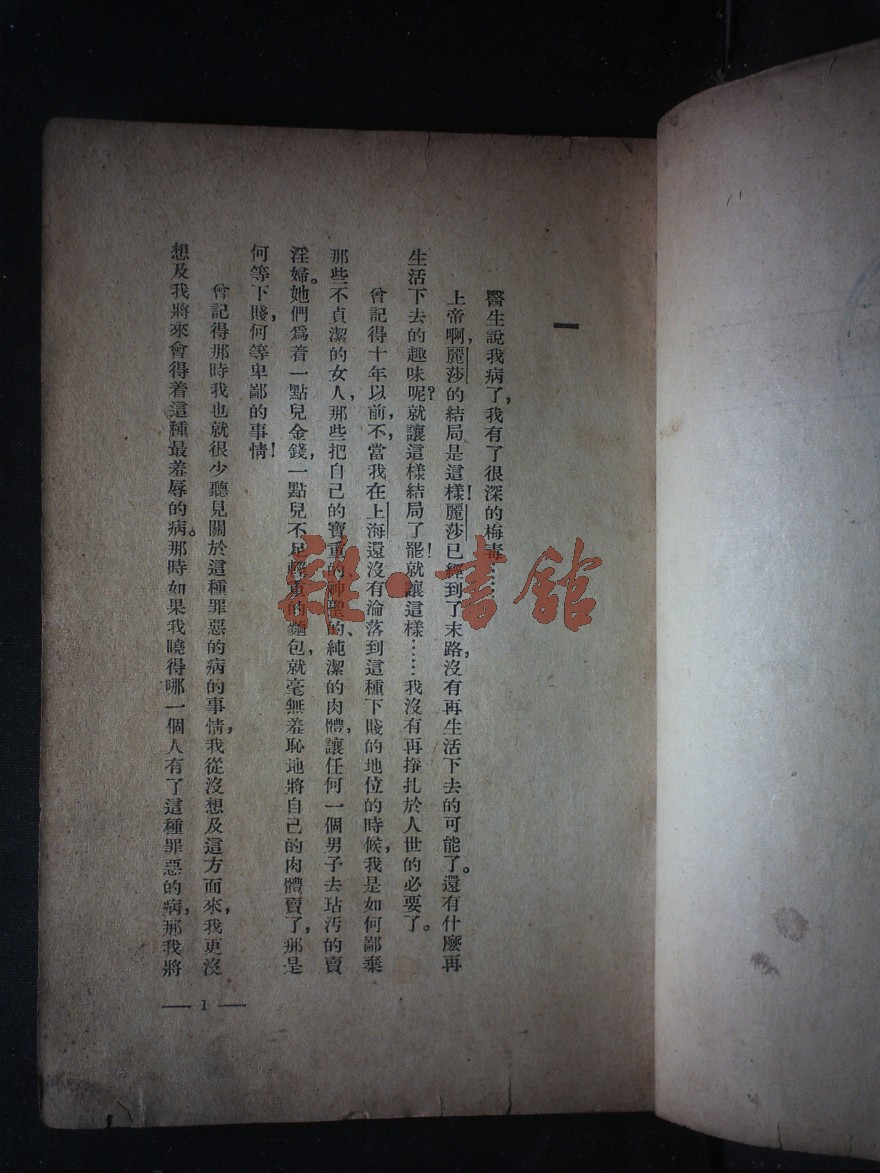 一
醫生說我病了，我有了很深的梅毒……
上帝啊，麗莎的結局是這樣！麗莎已經到了末路，沒有再生活下去的可能了。還有什麼再
生活下去的趣味呢？就讓這樣結局了罷！就讓這樣……我沒有再掙扎於人世的必要了。
曾記得十年以前，不，當我在上海還沒有淪落到這種下賤的地位的時候，我是如何鄙棄
那些不貞潔的女人，那些把自己的寶重的神聖的、純潔的肉體，讓任何一個男子去玷汚的賣
淫婦。她們爲着一點兒金錢，一點兒不足輕重的麵包，就毫無羞恥地將自己的肉體賣了，那是
何等下賤，何等卑鄙的事情！
曾記得那時我也就很少聽見關於這種罪惡的病的事情，我從沒想及這方面來，我更沒
想及我將來會得着這種最羞辱的病。那時如果我曉得哪一個人有了這種罪惡的病，那我將
— 1 —
雜·書館